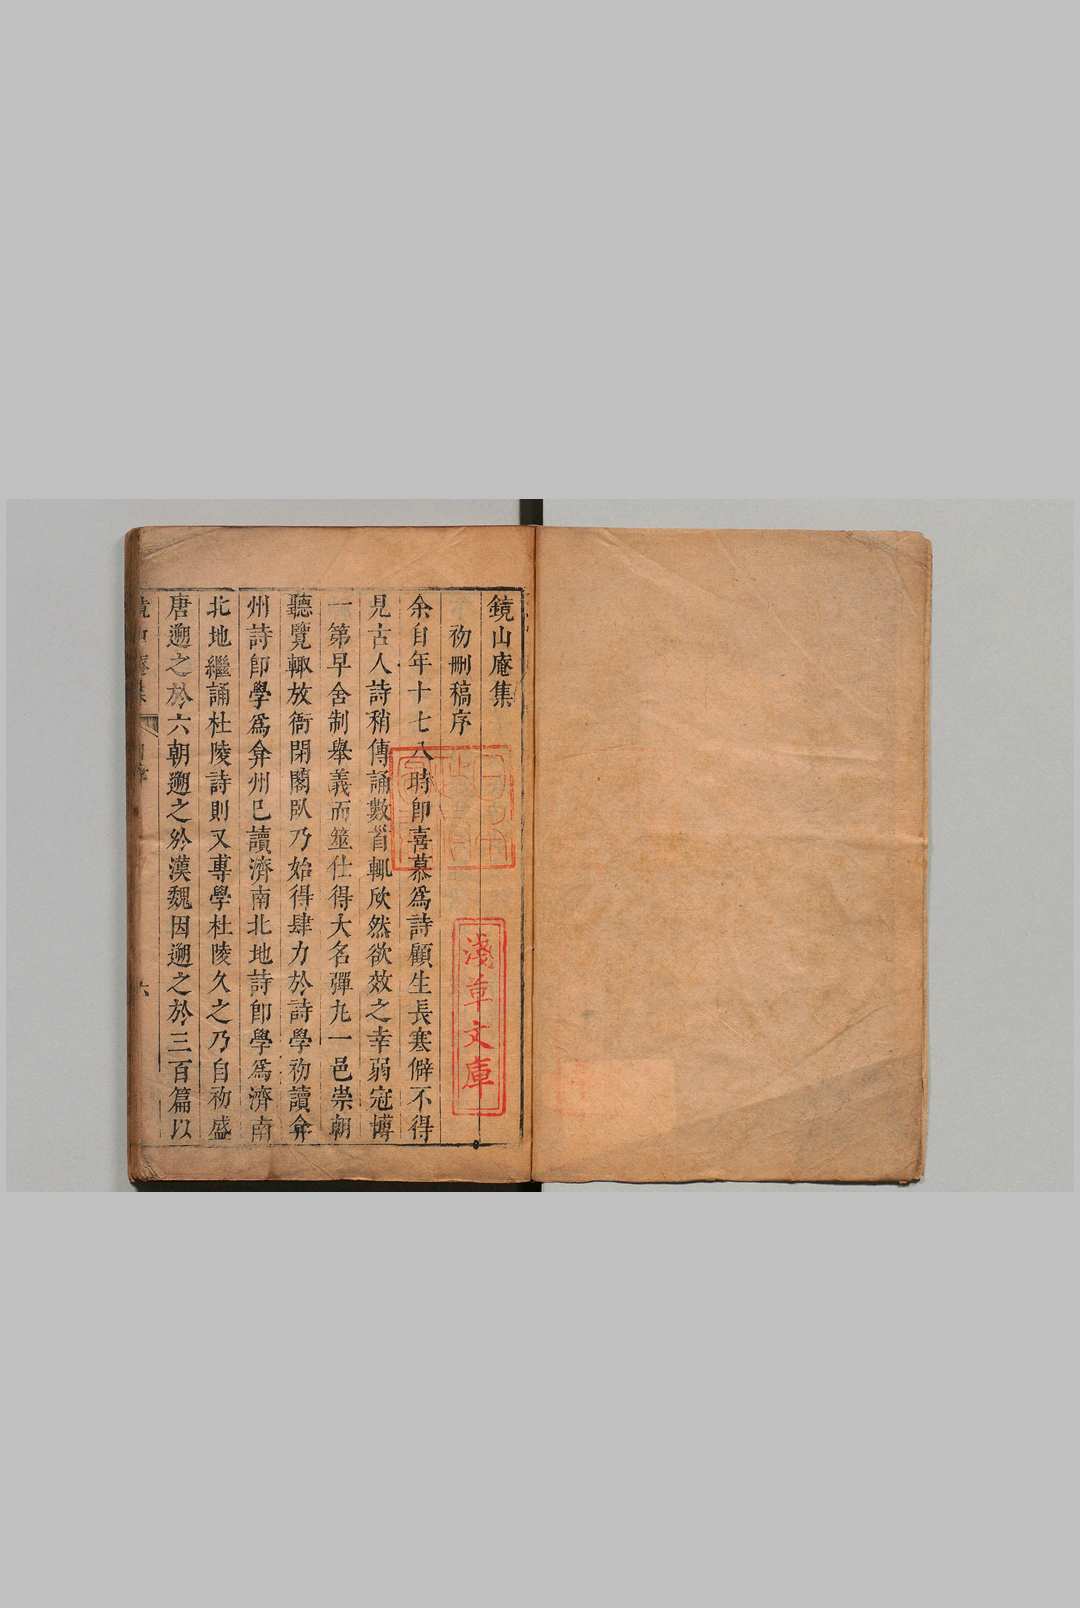 鏡山庵集
初刪稿序
余自年十七八時卽喜慕爲詩顧生長寒僻不得
見古人詩稍傳誦數首輒欣然欲效之幸弱冠博
一第早舍制舉義而筮仕得大名彈丸一邑崇朝
聽覽輙放衙閉閣臥乃始得肆力於詩學初讀弇
州詩卽學爲弇州已讀濟南北地詩卽學爲濟南
北地繼誦杜陵詩則又專學杜陵久之乃自初盛
唐遡之於六朝遡之於漢魏因遡之於三百篇以
山庵集
六
淺草文庫